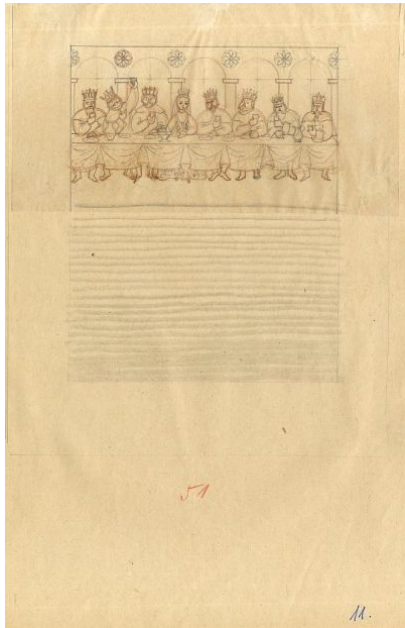 51
11.